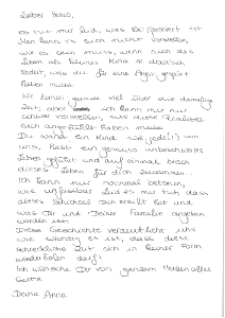 Lieber Hans,
es tut mir leid, was Dir passiert ist.
Man kann es sich nicht vorstellen,
wie es sein muss, wenn sich das
Leben als kleines Kind so drastisch
ändert, was du für eine Angst gespürt
haben musst.
Wir lernen genauso viel über die damalige
Zeit, aber ich kann mir nur
schwer vorstellen, wie diese Realität
sich angefühlt haben muss.
Du warst ein Kind wie jede(r) von
uns, hast ein genauso unbeschwertes
Leben geführt und auf einmal brach
dieses Leben für dich zusammen.
Ich kann nur nochmal betonen,
wie unfassbar leid es mir tut, dass
dieses Schicksal dich ereilt hat und
was Dir und Deiner Familie angetan
worden ist.
Deine Geschichte verdeutlicht uns
wie wichtig es ist, dass diese
schreckliche Zeit sich in keiner Form
wiederholen darf!
Ich wünsche Dir von ganzem Herzen alles
Gute.
Deine Anna